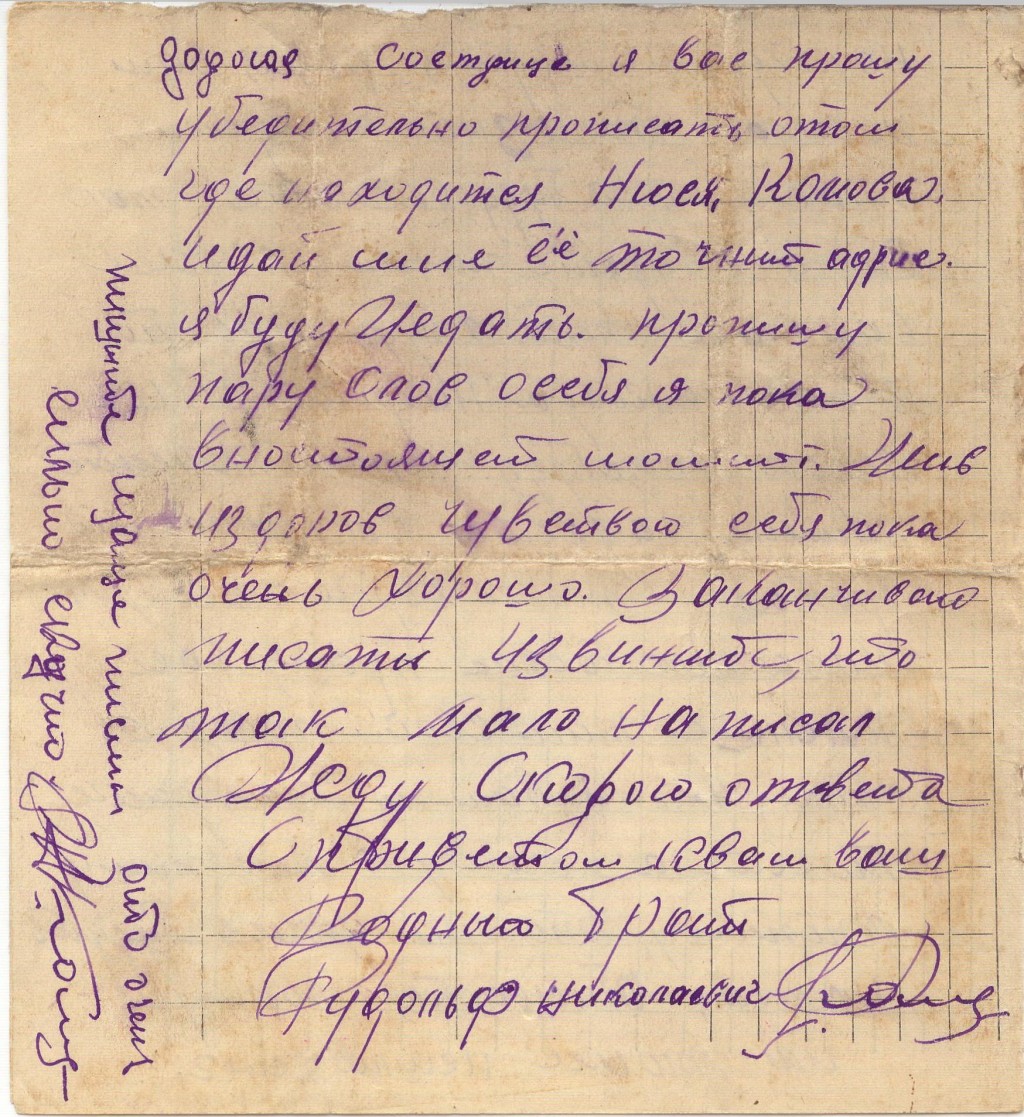 додогая состдице я вас прошу
убедительно прописать отом
где находится Нюся, Комова.
идай мне её точний адрис.
я буду Жедать. пропишу
пару Слов осебя я пока
вностоящей момит. Жив
издоров чувствою себя пока
очень Хорошо. Заканчиваю
писать извинить, что
так мало написал
Жеду Скорого отввета
С приветом квам ваш
Родный Брат
Рудольф николаевич
пишыте чаще писмы ато очен
сильно скучно